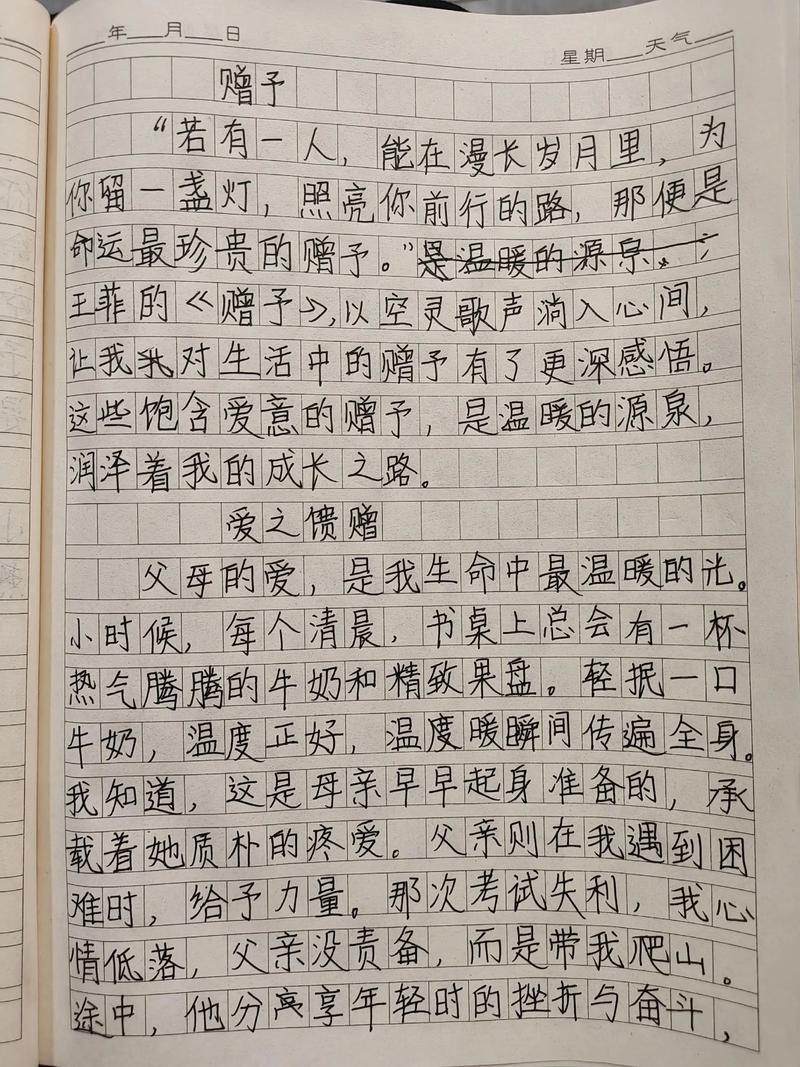 年 月 日
星期 天气
赠予
“若有一人，能在漫长岁月里，为
你留一盏灯，照亮你前行的路，那便是
命运最珍贵的赠予。”是温暖的源泉，
王菲的《赠予》，以空灵歌声淌入心间，
让我我对生活中的赠予有了更深感悟。
这些饱含爱意的赠予，是温暖的源泉，
润泽着我的成长之路。
爱之馈赠
父母的爱，是我生命中最温暖的光。
小时候，每个清晨，书桌上总会有一杯
热气腾腾的牛奶和精致果盘。轻抿一口
牛奶，温度正好，温度暖瞬间传遍全身。
我知道，这是母亲早早起身准备的，承
载着她质朴的疼爱。父亲则在我遇到困
难时，给予力量。那次考试失利，我心
情低落，父亲没责备，而是带我爬山。
途中，他分享年轻时的挫折与奋斗，